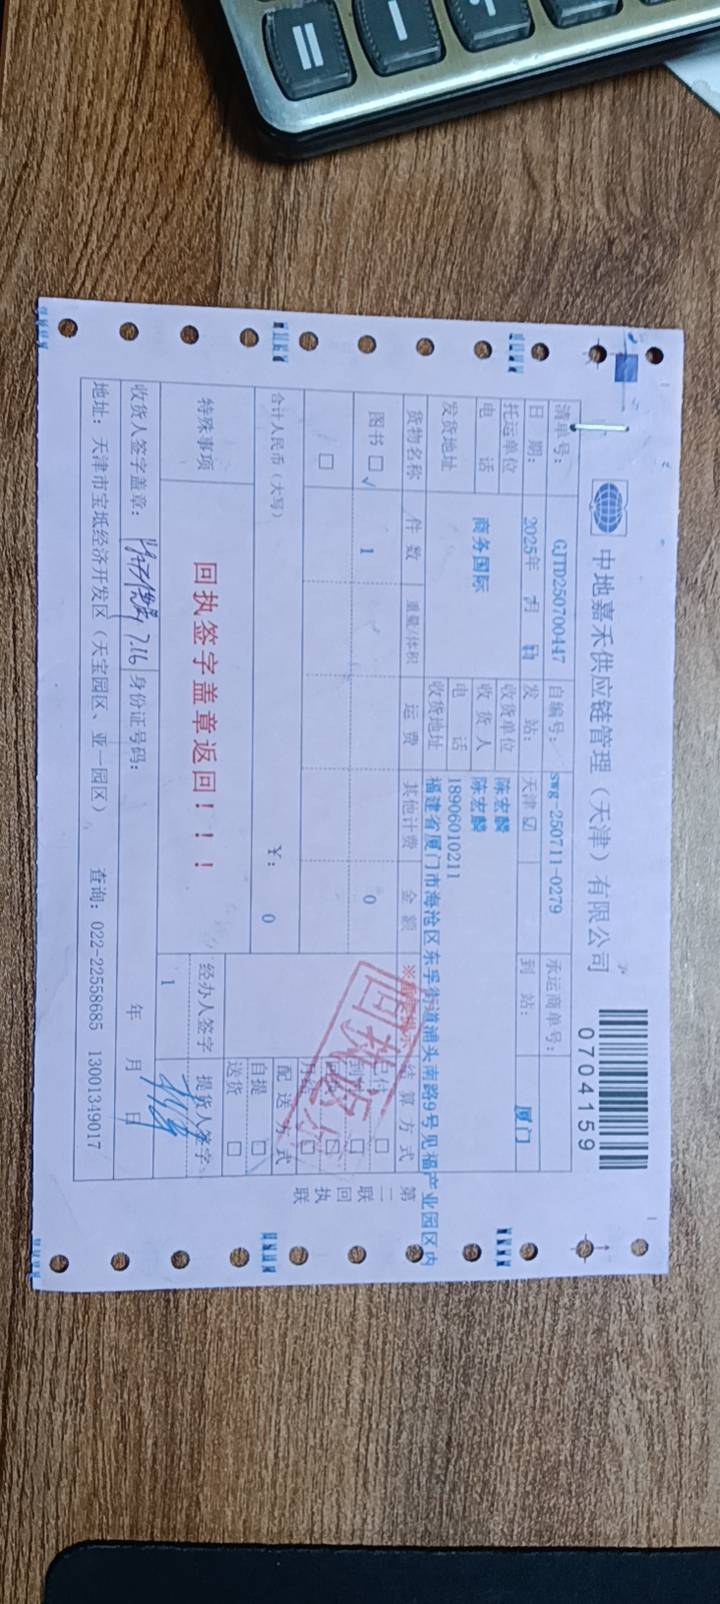 中地嘉禾供应链管理（天津）有限公司
0704159
清单号： GJTD250700447 自编号： swg-250711-0279 承运商单号：
日 期： 2025年 发 站： 天津 到 站： 厦门
托运单位 收货单位 陈宏麟
电 话 商务国际 收 货 人 陈宏麟
发货地址 电 话 18906010211
收货地址 福建省厦门市海沧区东孚街道浦头南路9号见福产业园区内
货物名称 件 数 重量/体积 运 费 其他计费 金 额 结 算 方 式
图书 □ √ 1 0
□
合计人民币（大写） ￥： 0 配 送 方 式
自提 □
送货 □
特殊事项 回执签字盖章返回！！！ 经办人签字 提货人签字
1
收货人签字盖章： 7.16 身份证号码： 年 月 日
地址：天津市宝坻经济开发区（天宝园区、亚一园区） 查询：022-22558685 13001349017
第二联 回执联